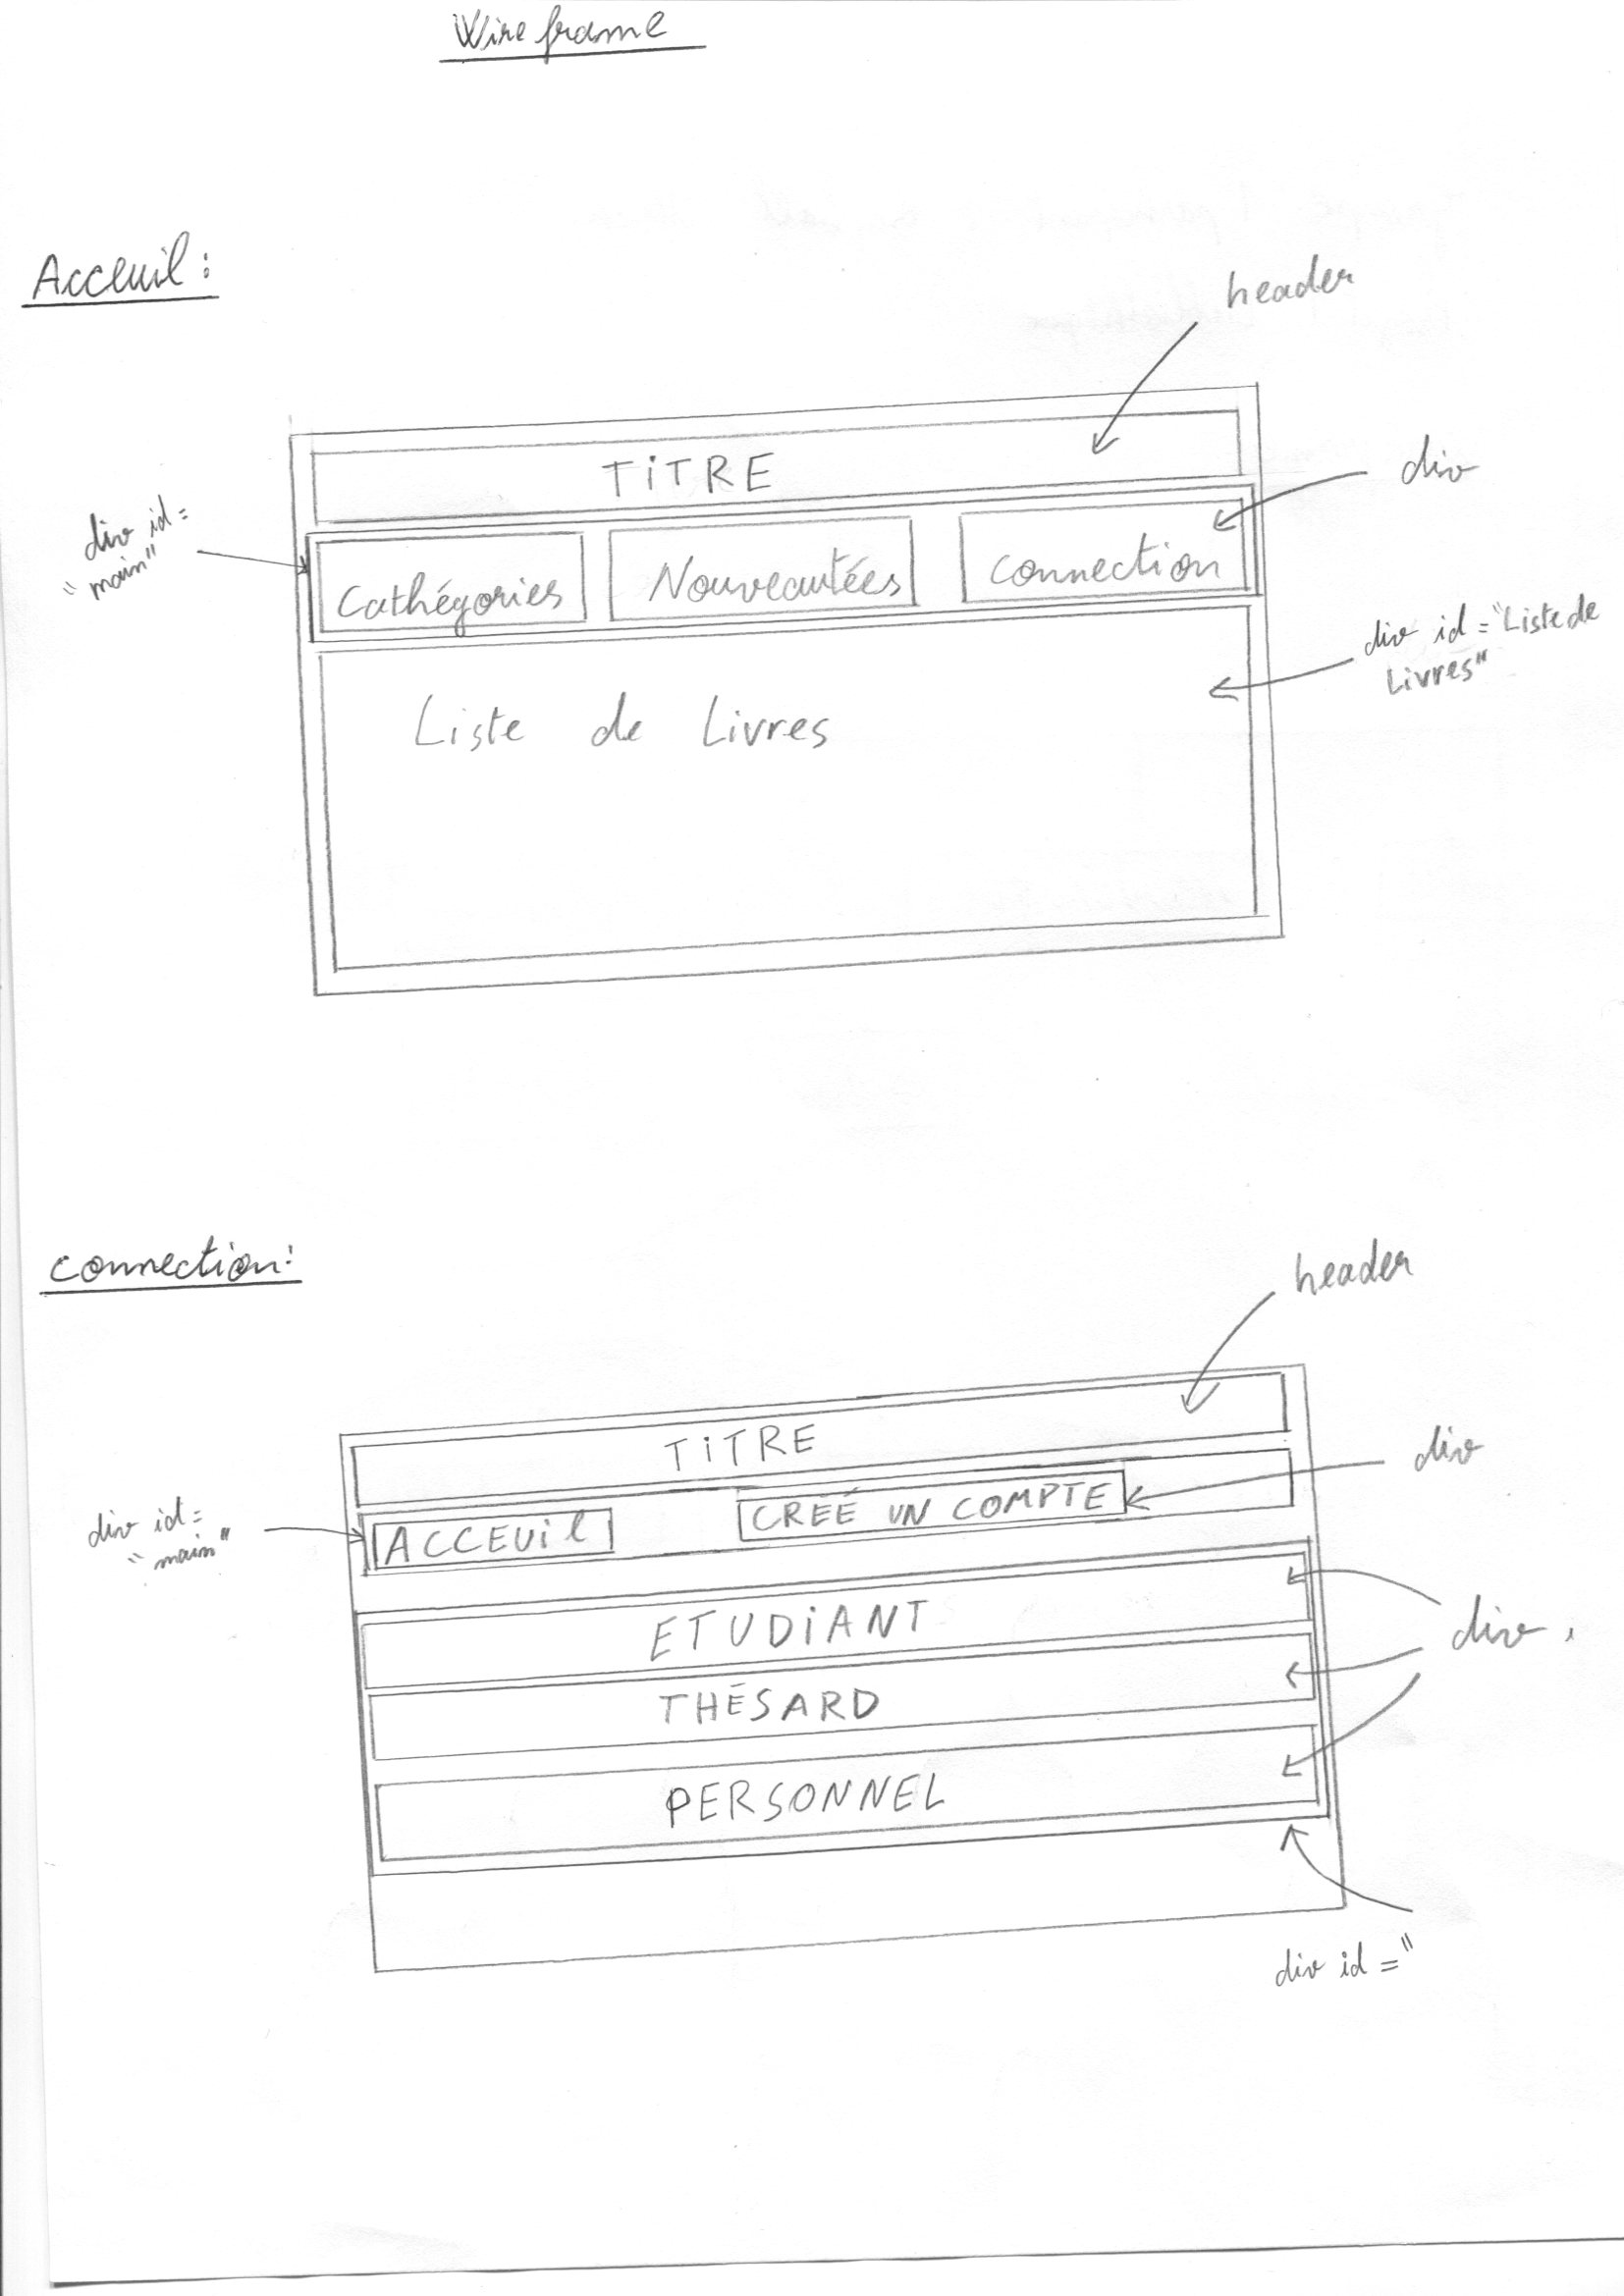 Wireframe
Acceuil :
header
TiTRE
div
div id=
"main"
Cathégories
Nouveautées
connection
div id="Liste de
Livres"
Liste de Livres
connection:
header
TiTRE
div
div id=
"main"
ACCEUil
CRÉÉ UN COMPTE
ETUDiANT
div
THÉSARD
PERSONNEL
div id="